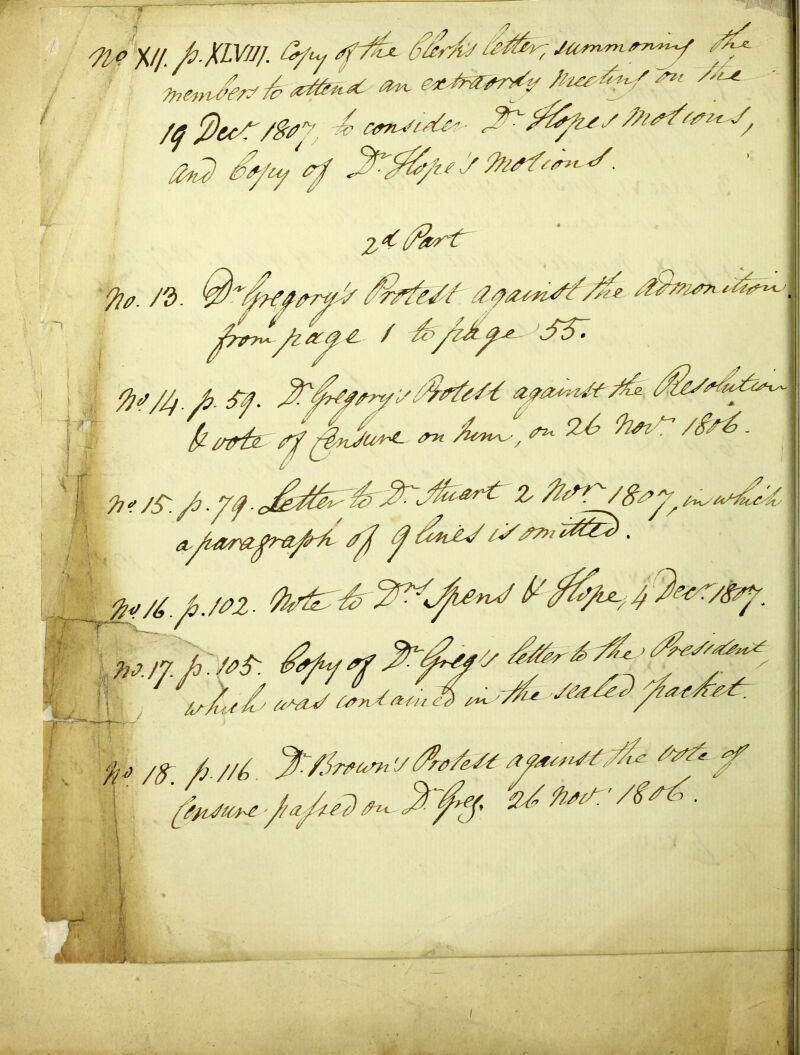 No XII. p. XLVIII. Copy of the Clerk's letter, summoning the
members to attend an extraordy Meeting on the
19 Decr. 1807, to consider Dr. Hope's Motions,
and Copy of Dr. Hope's Motions.
2d Part
No. 13. Dr Gregory's Protest against the Admonition
from page 1 to page 55.
No 14. p. 59. Dr. Gregory's Protest against the Resolution
& vote of Censure on him, on 26 Novr. 1806.
No 15. p. 79. Letter to Dr. Stuart 2 Novr 1807, in which
a paragraph of 9 lines is omitted.
No 16. p. 102. Note to Drs Spens & Hope, 4 Decr. 1807.
No. 17. p. 105. Copy of Dr. Greg's letter to the President,
which was contained in the sealed packet.
No 18. p. 116. Dr. Brown's Protest against the vote of
Censure passed on Dr. Greg. 26 Novr. 1806.